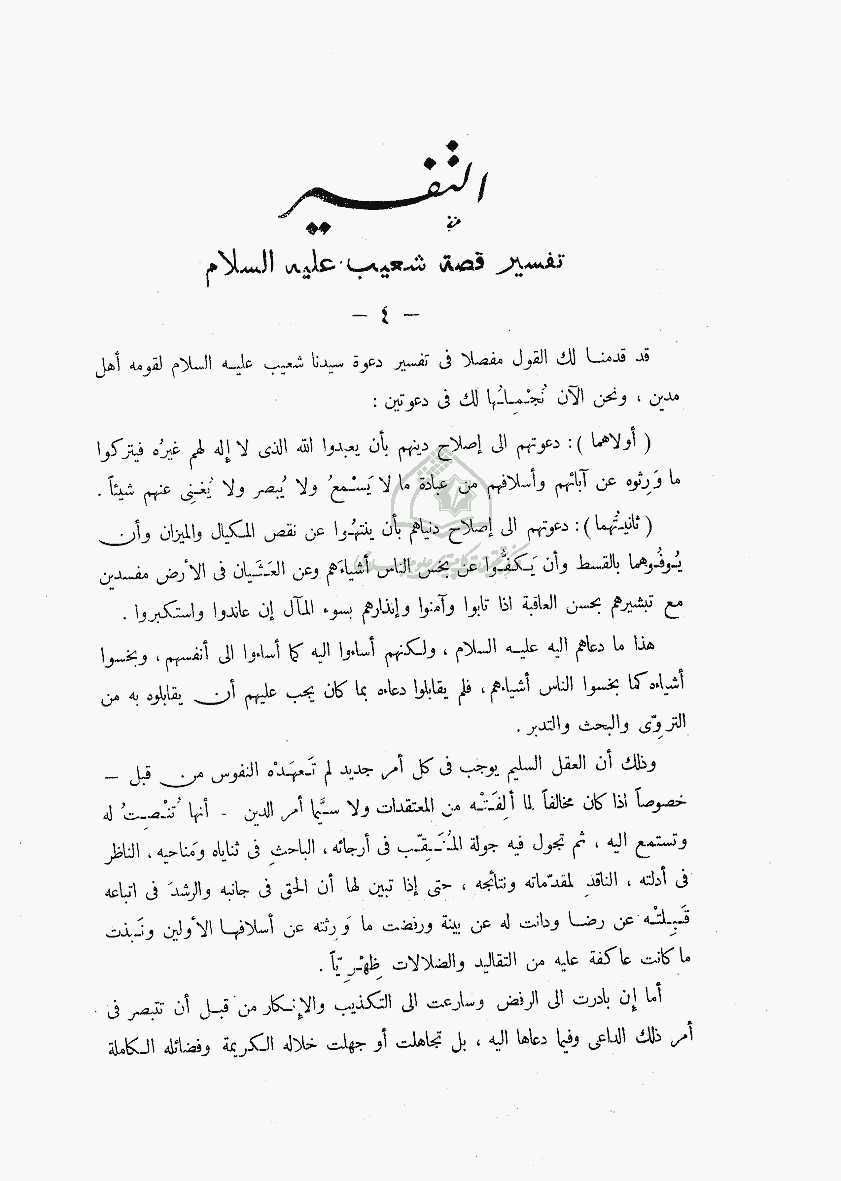 التفسير
تفسير قصة شعيب عليه السلام
— ٤ —
قد قدمنا لك القول مفصلا فى تفسير دعوة سيدنا شعيب عليه السلام لقومه أهل
مدين ، ونحن الآن نُجْمِلُها لك فى دعوتين :
( أولاهما ) : دعوتهم الى إصلاح دينهم بأن يعبدوا الله الذى لا إله لهم غيرُه فيتركوا
ما وَرِثوه عن آبائهم وأسلافهم من عبادة ما لا يَسْمعُ ولا يُبصر ولا يُغنِى عنهم شيئاً .
( ثانيتُهما ) : دعوتهم الى إصلاح دنياهم بأن ينتهُوا عن نقص المكيال والميزان وأن
يُوفُوهما بالقسط وأن يَكفُّوا عن بخس الناس أشياءَهم وعن العَثَيان فى الأرض مفسدين
مع تبشيرهم بحسن العاقبة اذا تابوا وآمنوا وإنذارهم بسوء المآل إن عاندوا واستكبروا .
هذا ما دعاهم اليه عليه السلام ، ولكنهم أساءوا اليه كما أساءوا الى أنفسهم ، وبخسوا
أشياءه كما بخسوا الناس أشياءهم ، فلم يقابلوا دعاءه بما كان يجب عليهم أن يقابلوه به من
التروّى والبحث والتدبر .
وذلك أن العقل السليم يوجب فى كل أمر جديد لم تَعهَدْه النفوس من قبل —
خصوصاً اذا كان مخالفاً لما ألِفَتْه من المعتقدات ولا سيَّما أمر الدين - أنها تُنْصِتُ له
وتستمع اليه ، ثم تجول فيه جولة المُنَقِّب فى أرجائه ، الباحثِ فى ثناياه ومَناحيه ، الناظر
فى أدلته ، الناقدِ لمقدّماته ونتائجه ، حتى إذا تبين لها أن الحق فى جانبه والرشدَ فى اتباعه
قَبِلتْه عن رضا ودانت له عن بينة ورفضت ما وَرِثته عن أسلافها الأولين ونَبذت
ما كانت عاكفة عليه من التقاليد والضلالات ظِهْرِيّاً .
أما إن بادرت الى الرفض وسارعت الى التكذيب والإنكار من قبل أن تتبصر فى
أمر ذلك الداعى وفيما دعاها اليه ، بل تجاهلت أو جهلت خلاله الكريمة وفضائله الكاملة